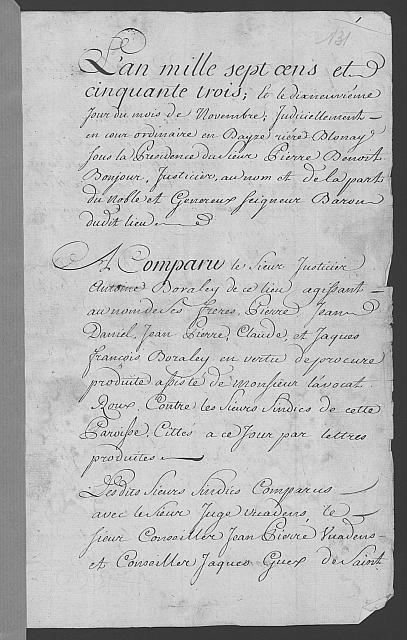 131
L'an mille sept cens et
cinquante trois; et le dixneuviéme
Jour du mois de Novembre, Judiciellement
en cour ordinaire en Bayze riere Blonay
Sous la Presidence du Sieur Pierre Benoit
Bonjour, Justicier, au nom et de la part
du Noble et Genereux Seigneur Baron
dudit lieu
A Comparu le Sieur Justicier
Antoine Boraley de ce lieu agissant
au nom de Ses freres, Pierre Jean
Daniel, Jean Pierre, Claude, et Jaques
françois Boraley en vertu de procure
produite assisté de Monsieur l'avocat
Roux. Contre les Sieurs Sindics de cette
Paroisse, Cittés a ce Jour par lettres
produites
Lesdits Sieurs Sindics Comparus
avec le Sieur Juge Vuadens le
Sieur Conseiller Jean Pierre Vuadens
et Conseiller Jaques Guex de Saint